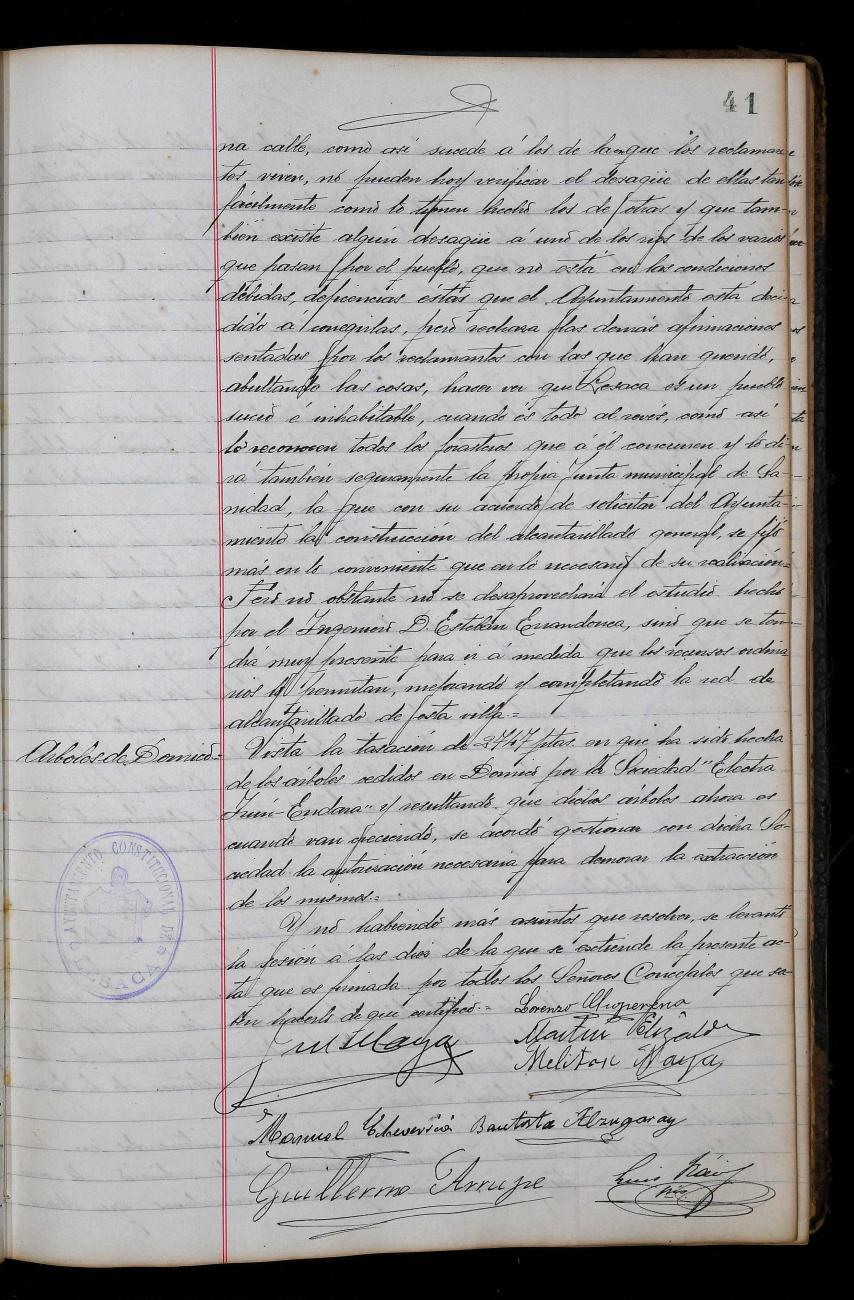 41
na calle, como así sucede á los de la que los reclaman-
tes viven, no pueden hoy verificar el desagüe de ellas tan
fácilmente como lo tienen hecho los de otras y que tam-
bién existe algún desagüe á uno de los rios de los varios
que pasan por el pueblo, que no está en las condiciones
debidas, deficiencias éstas que el Ayuntamiento está deci-
dido á corregirlas, pero rechaza las demás afirmaciones
sentadas por los reclamantes con las que han querido,
abultando las cosas, hacer ver que Lesaca es un pueblo
sucio é inhabitable, cuando és todo al revés, como así
lo reconocen todos los forasteros que á él concurren y lo di-
rá también seguramente la propia Junta municipal de Sa-
nidad, la que con su acuerdo de solicitar del Ayunta-
miento la construcción del alcantarillado general, se fijó
más en lo conveniente que en lo necesario de su realización=
Pero no obstante no se desaprovechará el estudio hecho
por el Ingeniero D. Esteban Errandonea, sinó que se ten-
drá muy presente para ir á medida que los recursos ordina
rios lo permitan, mejorando y completando la red de
alcantarillado de esta villa.=
Arboles de Domico=
Vista la tasación de 2747 ptas. en que ha sido hecha
de los árboles cedidos en Domico por la Sociedad "Electra
Irún-Endara" y resultando que dichos árboles ahora es
cuando van creciendo, se acordó gestionar con dicha So-
ciedad la autorización necesaria para demorar la extracción
de los mismos=
AYUNTAMIENTO CONSTITUCIONAL DE LESACA
Y no habiendo más asuntos que resolver, se levantó
la sesión á las diez de la que se extiende la presente ac-
ta que es firmada por todos los Señores Concejales que sa-
ben hacerlo de que certifico.= Lorenzo
Maya
Martin Elizalde
Meliton Maya
Manuel Echeverria Bautista Alzugaray
Guillermo Arrupe
Luis